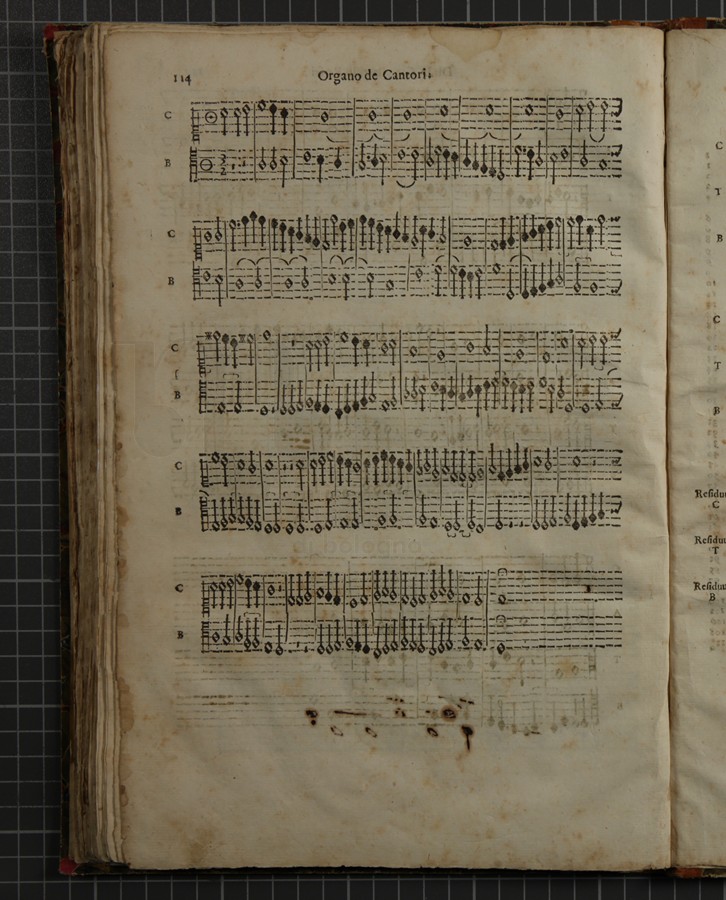 114
Organo de Cantori:
C
B
C
B
C
B
C
B
C
B
C
T
B
C
T
B
Residuu
C
Residuu
T
Residuu
B